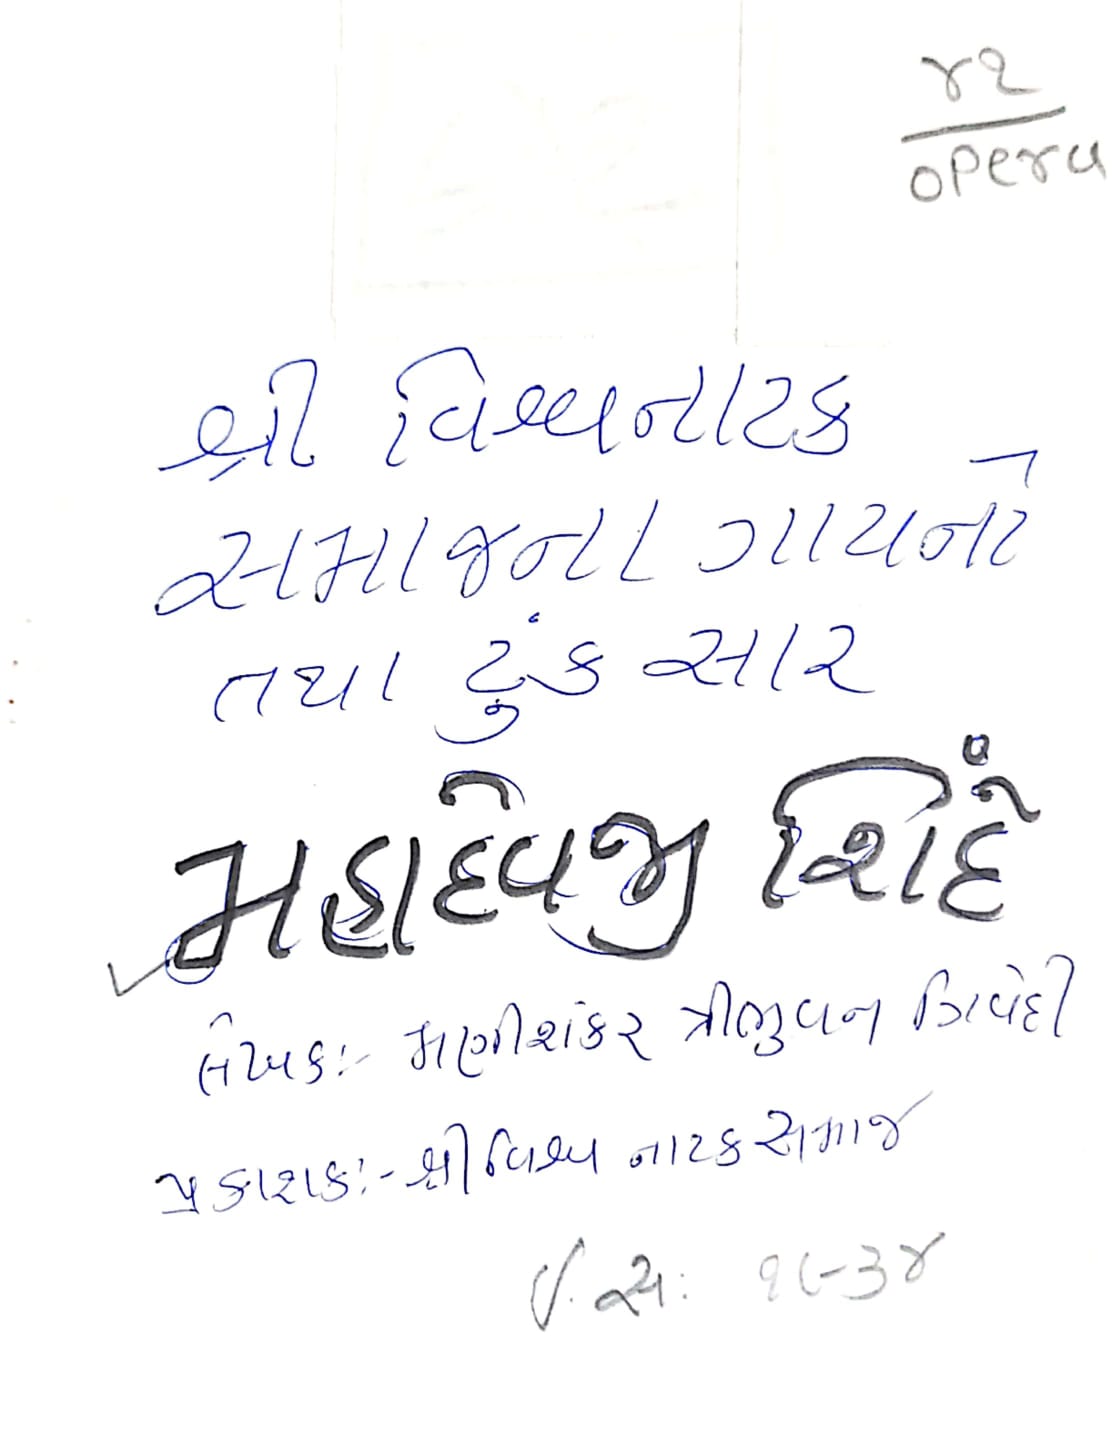 ૪૨
opera
શ્રી વિશ્વનાટક
સમાજના ગાયનો
તથા ટુંક સાર
મહાદેવજી શિંદે
લેખક:- મણીશંકર ત્રીભુવન ત્રિવેદી
પ્રકાશક:- શ્રી વિશ્વ નાટક સમાજ
ઈ.સ: ૧૯૩૪